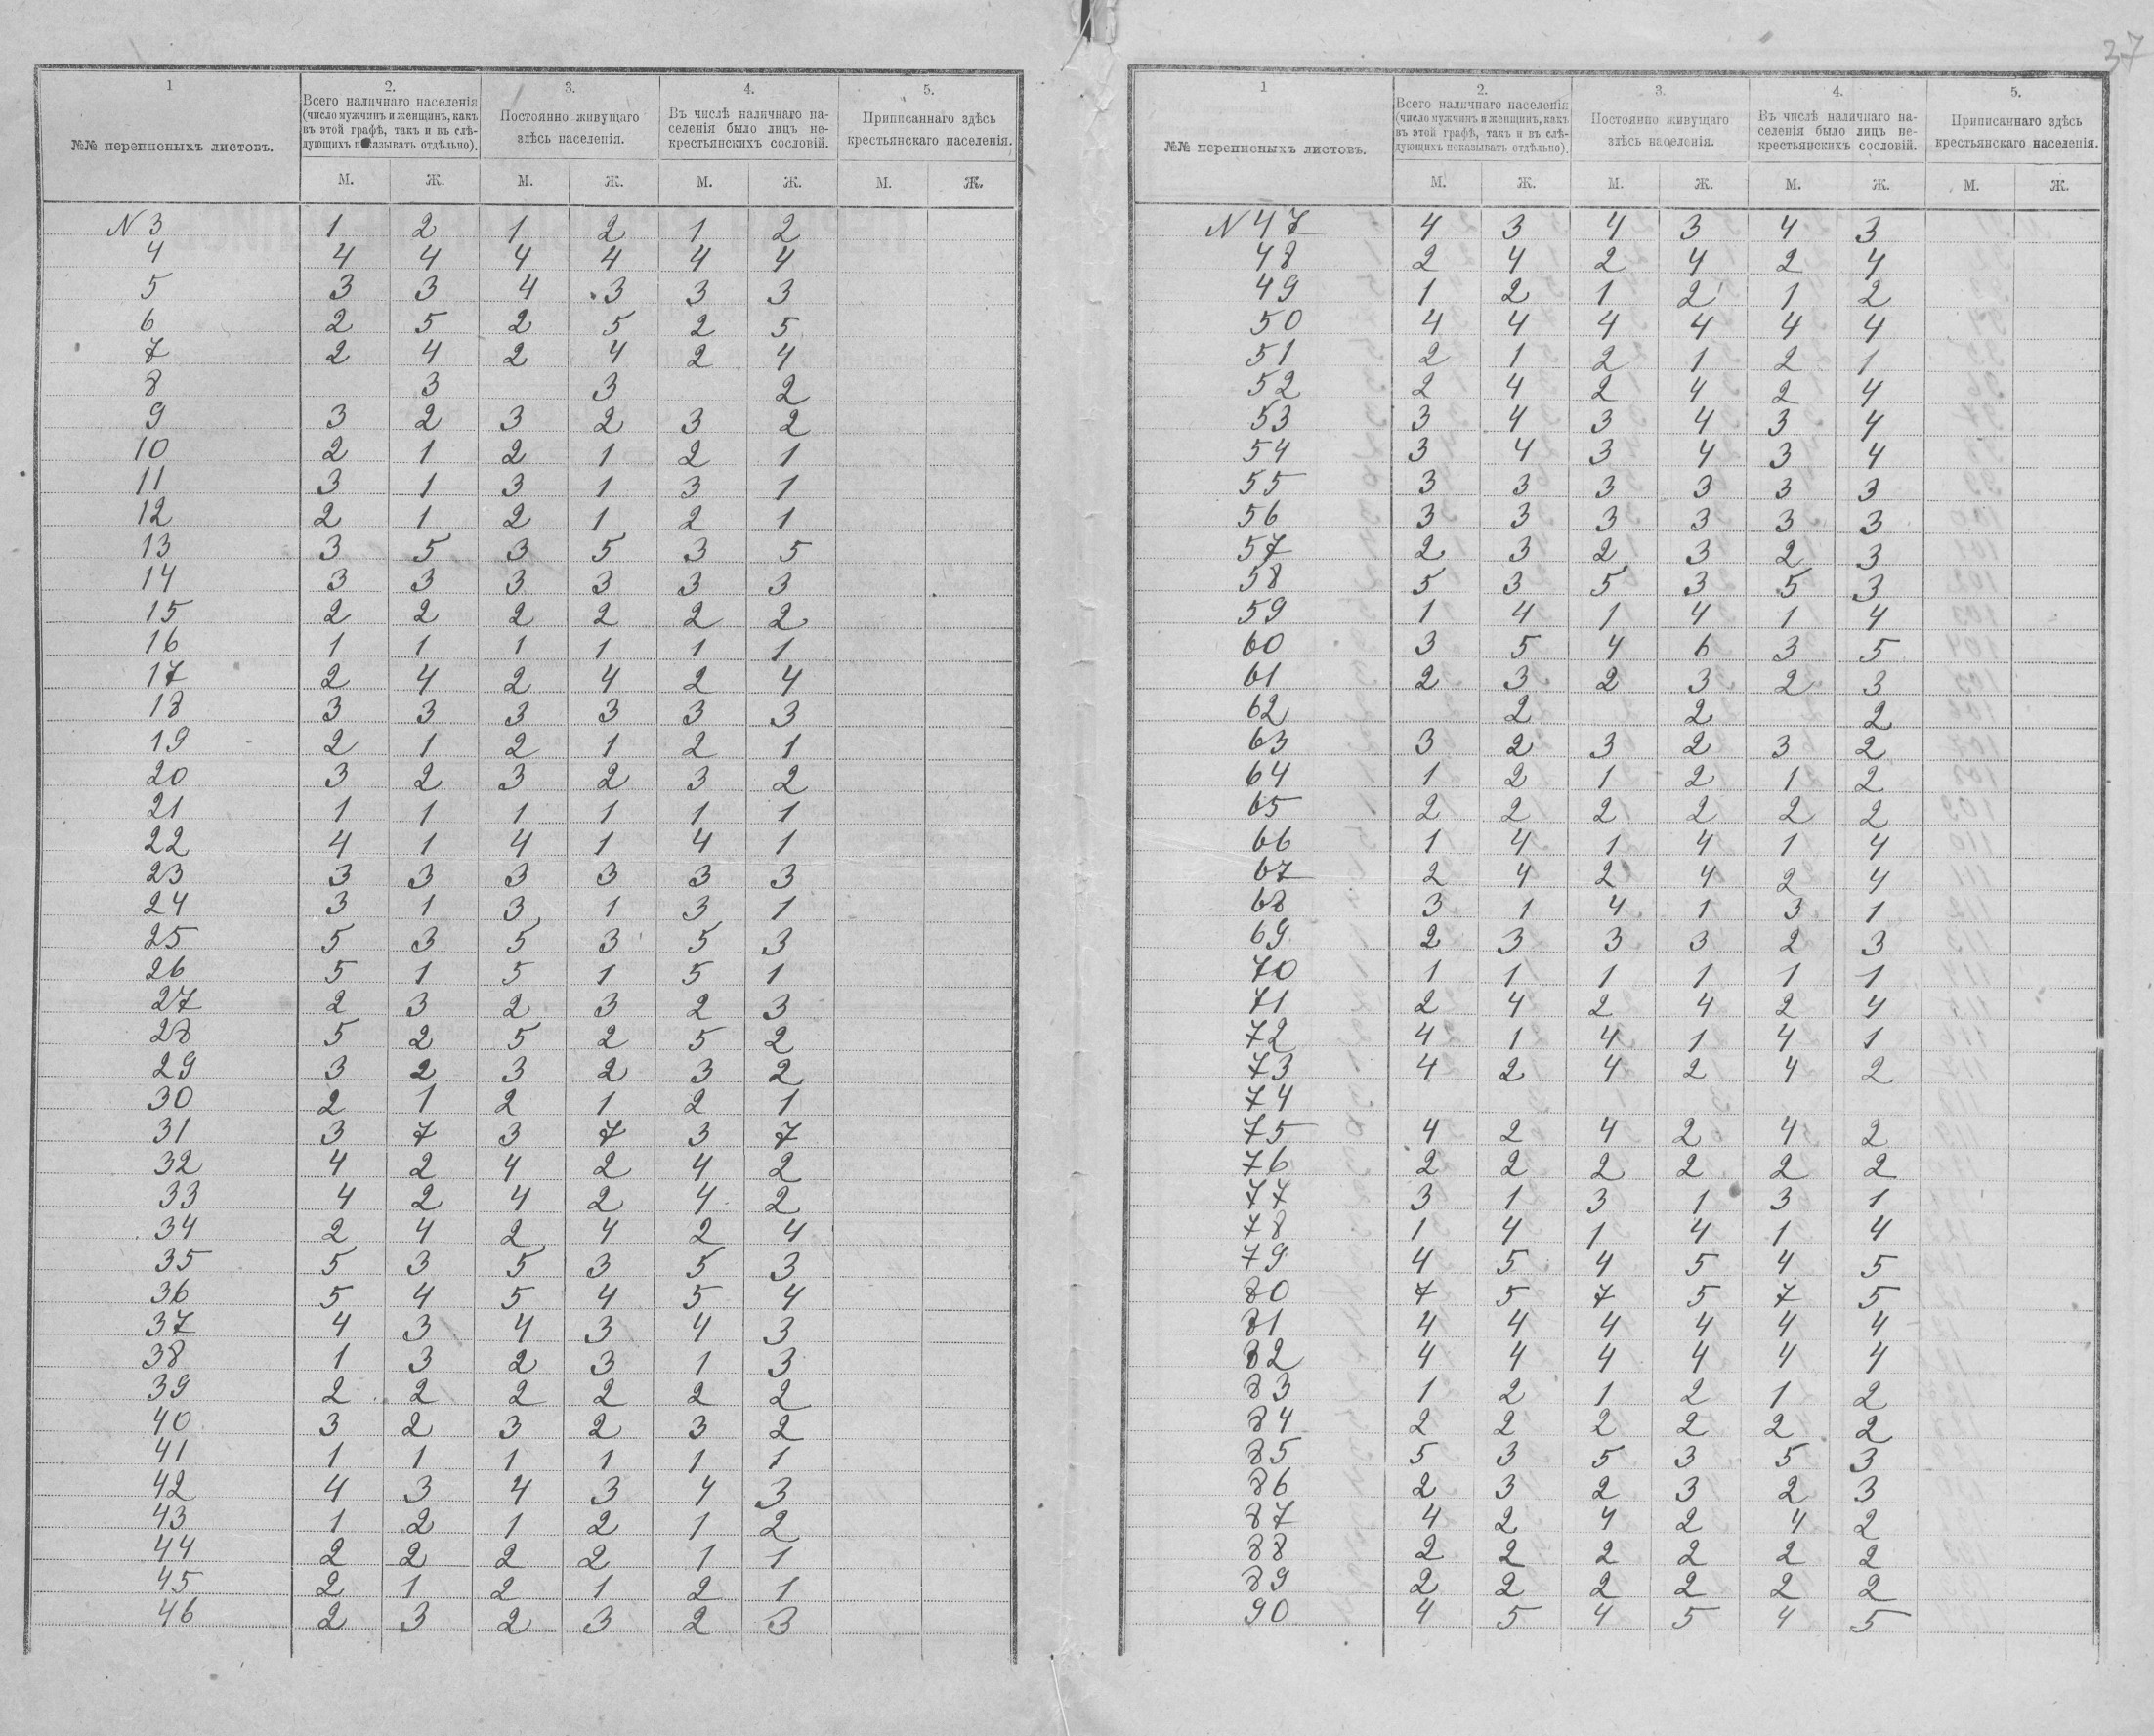 37
1 2. 3. 4. 5.
№№ переписныхъ листовъ. Всего наличнаго населенія (число мужчинъ и женщинъ, какъ въ этой графѣ, такъ и въ слѣ-дующихъ показывать отдѣльно). Постоянно живущаго здѣсь населенія. Въ числѣ наличнаго на-селенія было лицъ не-крестьянскихъ сословій. Приписаннаго здѣсь крестьянскаго населенія.
М. Ж. М. Ж. М. Ж. М. Ж.
N 3 1 2 1 2 1 2
4 4 4 4 4 4 4
5 3 3 4 3 3 3
6 2 5 2 5 2 5
7 2 4 2 4 2 4
8 3 3 2
9 3 2 3 2 3 2
10 2 1 2 1 2 1
11 3 1 3 1 3 1
12 2 1 2 1 2 1
13 3 5 3 5 3 5
14 3 3 3 3 3 3
15 2 2 2 2 2 2
16 1 1 1 1 1 1
17 2 4 2 4 2 4
18 3 3 3 3 3 3
19 2 1 2 1 2 1
20 3 2 3 2 3 2
21 1 1 1 1 1 1
22 4 1 4 1 4 1
23 3 3 3 3 3 3
24 3 1 3 1 3 1
25 5 3 5 3 5 3
26 5 1 5 1 5 1
27 2 3 2 3 2 3
28 5 2 5 2 5 2
29 3 2 3 2 3 2
30 2 1 2 1 2 1
31 3 7 3 7 3 7
32 4 2 4 2 4 2
33 4 2 4 2 4 2
34 2 4 2 4 2 4
35 5 3 5 3 5 3
36 5 4 5 4 5 4
37 4 3 4 3 4 3
38 1 3 2 3 1 3
39 2 2 2 2 2 2
40 3 2 3 2 3 2
41 1 1 1 1 1 1
42 4 3 4 3 4 3
43 1 2 1 2 1 2
44 2 2 2 2 1 1
45 2 1 2 1 2 1
46 2 3 2 3 2 3
1 2. 3. 4. 5.
№№ переписныхъ листовъ. Всего наличнаго населенія (число мужчинъ и женщинъ, какъ въ этой графѣ, такъ и въ слѣ-дующихъ показывать отдѣльно). Постоянно живущаго здѣсь населенія. Въ числѣ наличнаго на-селенія было лицъ не-крестьянскихъ сословій. Приписаннаго здѣсь крестьянскаго населенія.
М. Ж. М. Ж. М. Ж. М. Ж.
N 47 4 3 4 3 4 3
48 2 4 2 4 2 4
49 1 2 1 2 1 2
50 4 4 4 4 4 4
51 2 1 2 1 2 1
52 2 4 2 4 2 4
53 3 4 3 4 3 4
54 3 4 3 4 3 4
55 3 3 3 3 3 3
56 3 3 3 3 3 3
57 2 3 2 3 2 3
58 5 3 5 3 5 3
59 1 4 1 4 1 4
60 3 5 4 6 3 5
61 2 3 2 3 2 3
62 2 2 2
63 3 2 3 2 3 2
64 1 2 1 2 1 2
65 2 2 2 2 2 2
66 1 4 1 4 1 4
67 2 4 2 4 2 4
68 3 1 4 1 3 1
69 2 3 3 3 2 3
70 1 1 1 1 1 1
71 2 4 2 4 2 4
72 4 1 4 1 4 1
73 4 2 4 2 4 2
74
75 4 2 4 2 4 2
76 2 2 2 2 2 2
77 3 1 3 1 3 1
78 1 4 1 4 1 4
79 4 5 4 5 4 5
80 7 5 7 5 7 5
81 4 4 4 4 4 4
82 4 4 4 4 4 4
83 1 2 1 2 1 2
84 2 2 2 2 2 2
85 5 3 5 3 5 3
86 2 3 2 3 2 3
87 4 2 4 2 4 2
88 2 2 2 2 2 2
89 2 2 2 2 2 2
90 4 5 4 5 4 5